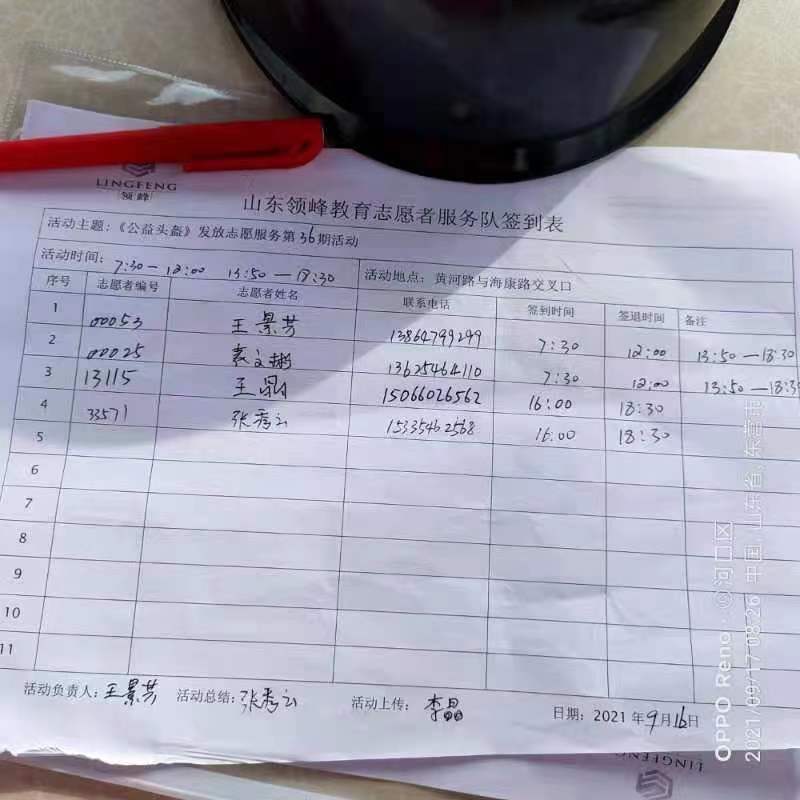 LINGFENG
领峰
山东领峰教育志愿者服务队签到表
活动主题：《公益头盔》发放志愿服务第36期活动
活动时间：7:30—12:00 13:50—18:30 活动地点：黄河路与海康路交叉口
序号 志愿者编号 志愿者姓名 联系电话 签到时间 签退时间 备注
1 00053 王景芳 13864799299 7:30 12:00 13:50—18:30
2 00025 袁文彬 13625464110 7:30 12:00 13:50—18:30
3 13115 王晶 15066026562 16:00 18:30
4 33571 张秀云 15335462568 16:00 18:30
5
6
7
8
9
10
11
活动负责人：王景芳 活动总结：张秀云 活动上传：李晶 日期：2021年9月16日
LINGFENG
OPPO Reno · @河口区
2021/09/17 08:26 中国, 山东省, 东营市